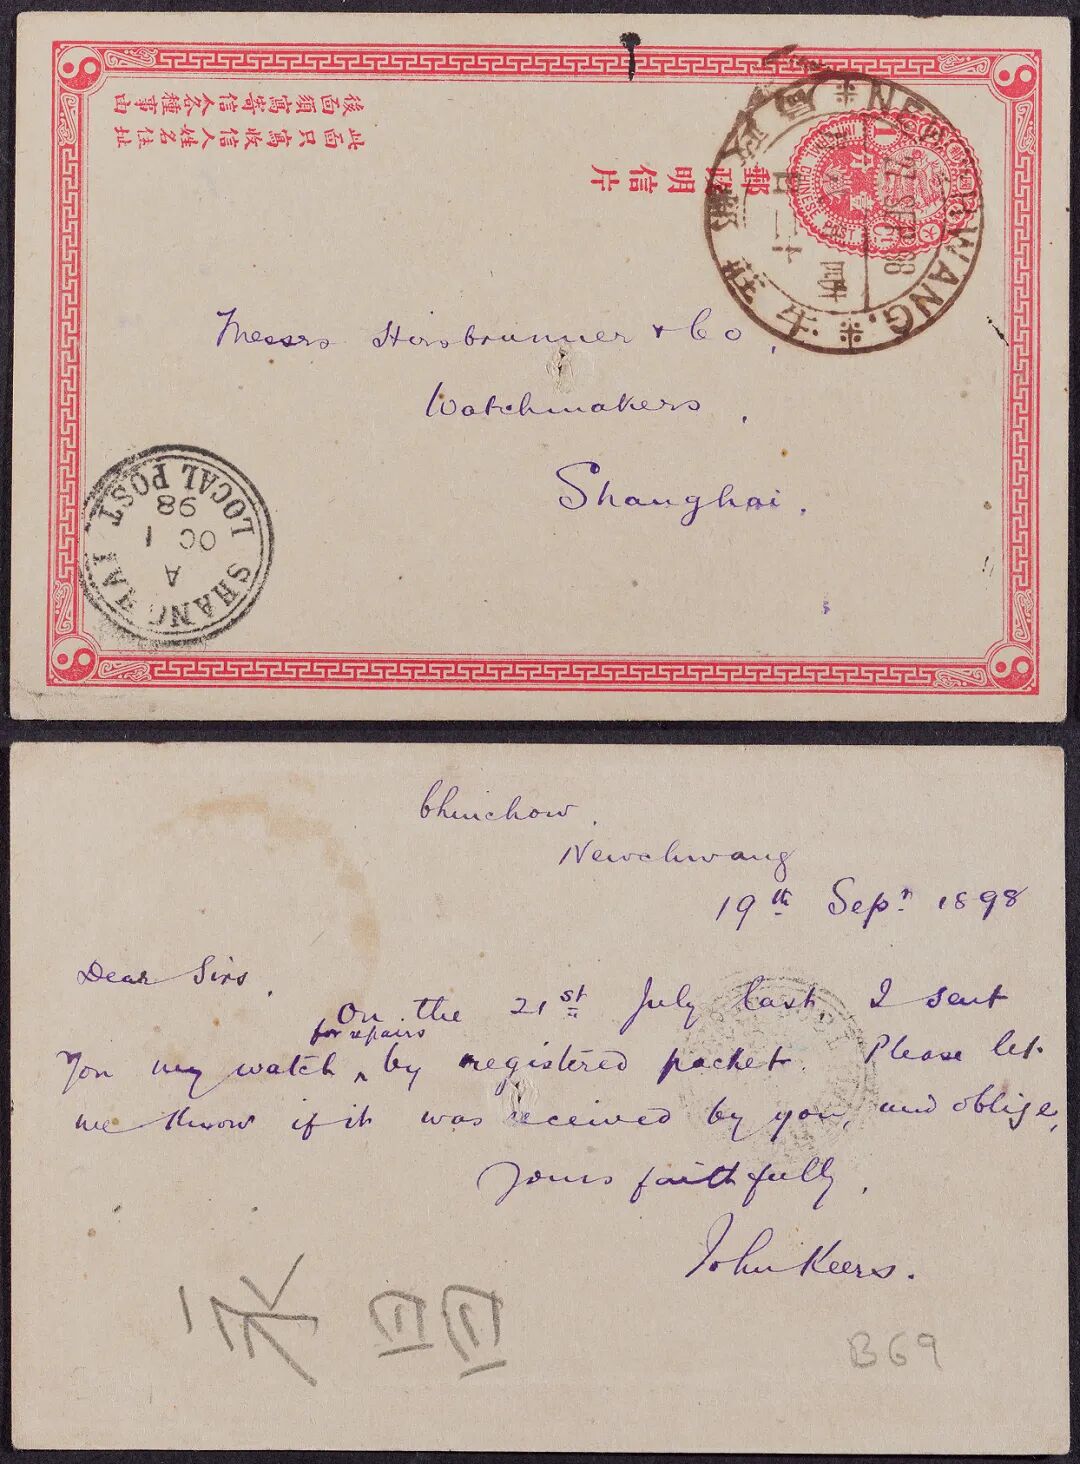 後面須寫寄信人各種事由
此面只寫收信人姓名住址
郵政明信片
CHINESE POST
NEWCHWANG.
牛莊郵政
SEP 98
Messrs Hirsbrunner & Co,
Watchmakers,
Shanghai.
SHANGHAI LOCAL POST
A
OC 1
98
Chinchow.
Newchwang
19th Sepr 1898
Dear Sirs,
On the 21st July last, I sent
for repairs
You my watch ‸ by registered packet. Please let
me know if it was received by you, and oblige,
Yours faithfully,
John Keers.
B69